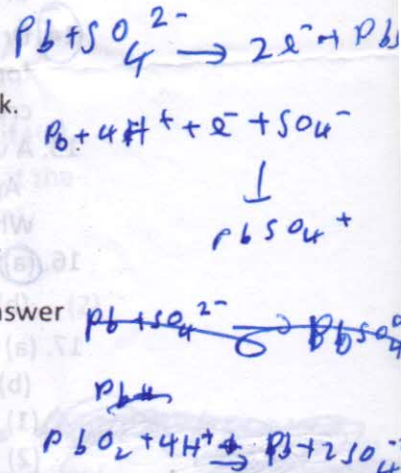 Pb + SO4^2- → 2e^- + Pbs
k.
Pb + 4H^+ + e^- + SO4^-
↓
PbSO4^+
16. (a)
nswer Pb + SO4^2- → PbSO4
17. (a)
(b)
Pb
(1)
PbO2 + 4H^+ → Pb + 2SO4^-
(2)